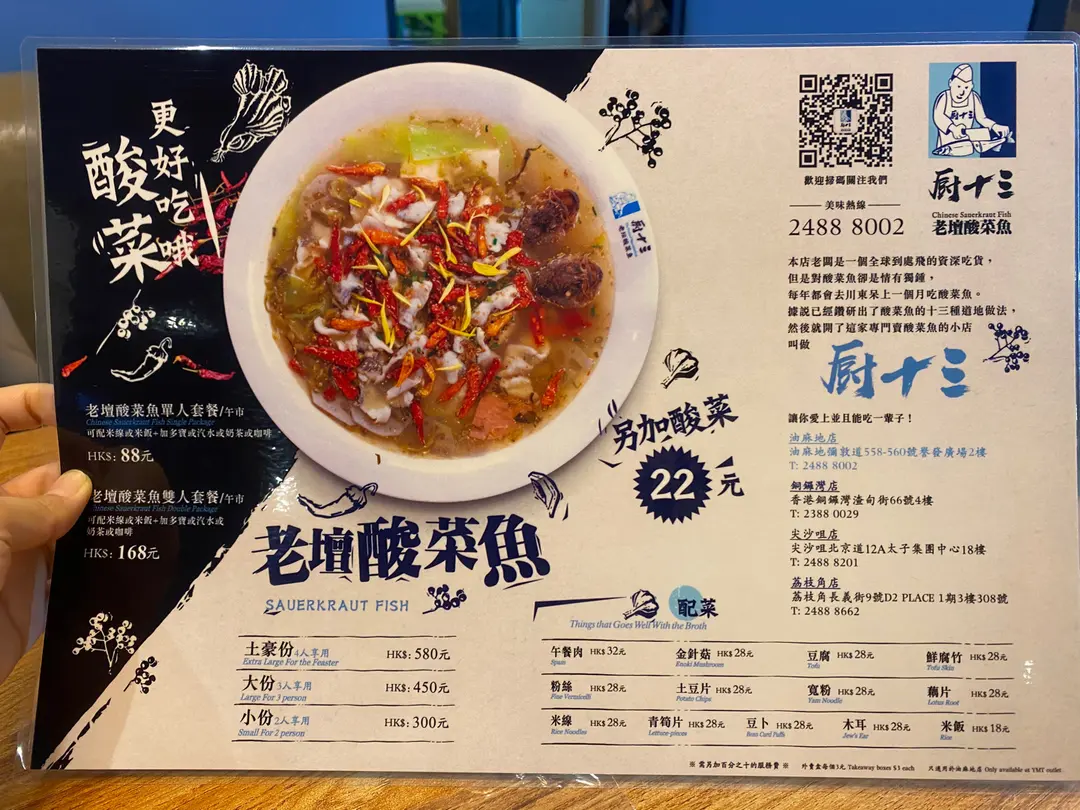 更好吃哦
酸菜
老壇酸菜魚單人套餐/午市
Chinese Sauerkraut Fish Single Package
可配米線或米飯+加多寶或汽水或奶茶或咖啡
HK$: 88元
老壇酸菜魚雙人套餐/午市
Chinese Sauerkraut Fish Double Package
可配米線或米飯+加多寶或汽水或
奶茶或咖啡
HK$: 168元
厨十三
老壇酸菜魚
另加酸菜
22元
老壇酸菜魚
SAUERKRAUT FISH
土豪份4人享用 HK$: 580元
Extra Large For the Feaster
大份3人享用 HK$: 450元
Large For 3 person
小份2人享用 HK$: 300元
Small For 2 person
歡迎掃碼關注我們
美味熱線
2488 8002
厨十三
Chinese Sauerkraut Fish
老壇酸菜魚
本店老闆是一個全球到處飛的資深吃貨，
但是對酸菜魚卻是情有獨鍾，
每年都會去川東呆上一個月吃酸菜魚。
據説已經鑽研出了酸菜魚的十三種道地做法，
然後就開了這家專門賣酸菜魚的小店
叫做
厨十三
讓你愛上並且能吃一輩子！
油麻地店
油麻地彌敦道558-560號譽發廣場2樓
T: 2488 8002
銅鑼灣店
香港銅鑼灣渣甸街66號4樓
T: 2388 0029
尖沙咀店
尖沙咀北京道12A太子集團中心18樓
T: 2488 8201
荔枝角店
荔枝角長義街9號D2 PLACE 1期3樓308號
T: 2488 8662
配菜
Things that Goes Well With the Broth
午餐肉 HK$ 32元 金針菇 HK$ 28元 豆腐 HK$ 28元 鮮腐竹 HK$ 28元
Spam Enoki Mushroom Tofu Tofu Skin
粉絲 HK$ 28元 土豆片 HK$ 28元 寬粉 HK$ 28元 藕片 HK$ 28元
Fine Vermicelli Potato Chips Yam Noodle Lotus Root
米線 HK$ 28元 青筍片 HK$ 28元 豆卜 HK$ 28元 木耳 HK$ 28元 米飯 HK$ 18元
Rice Noodles Lettuce-pieces Bean Curd Puffs Jew's Ear Rice
※ 需另加百分之十的服務費 ※ 外賣盒每個3元 Takeaway boxes $3 each 只適用於油麻地店 Only available at YMT outlet